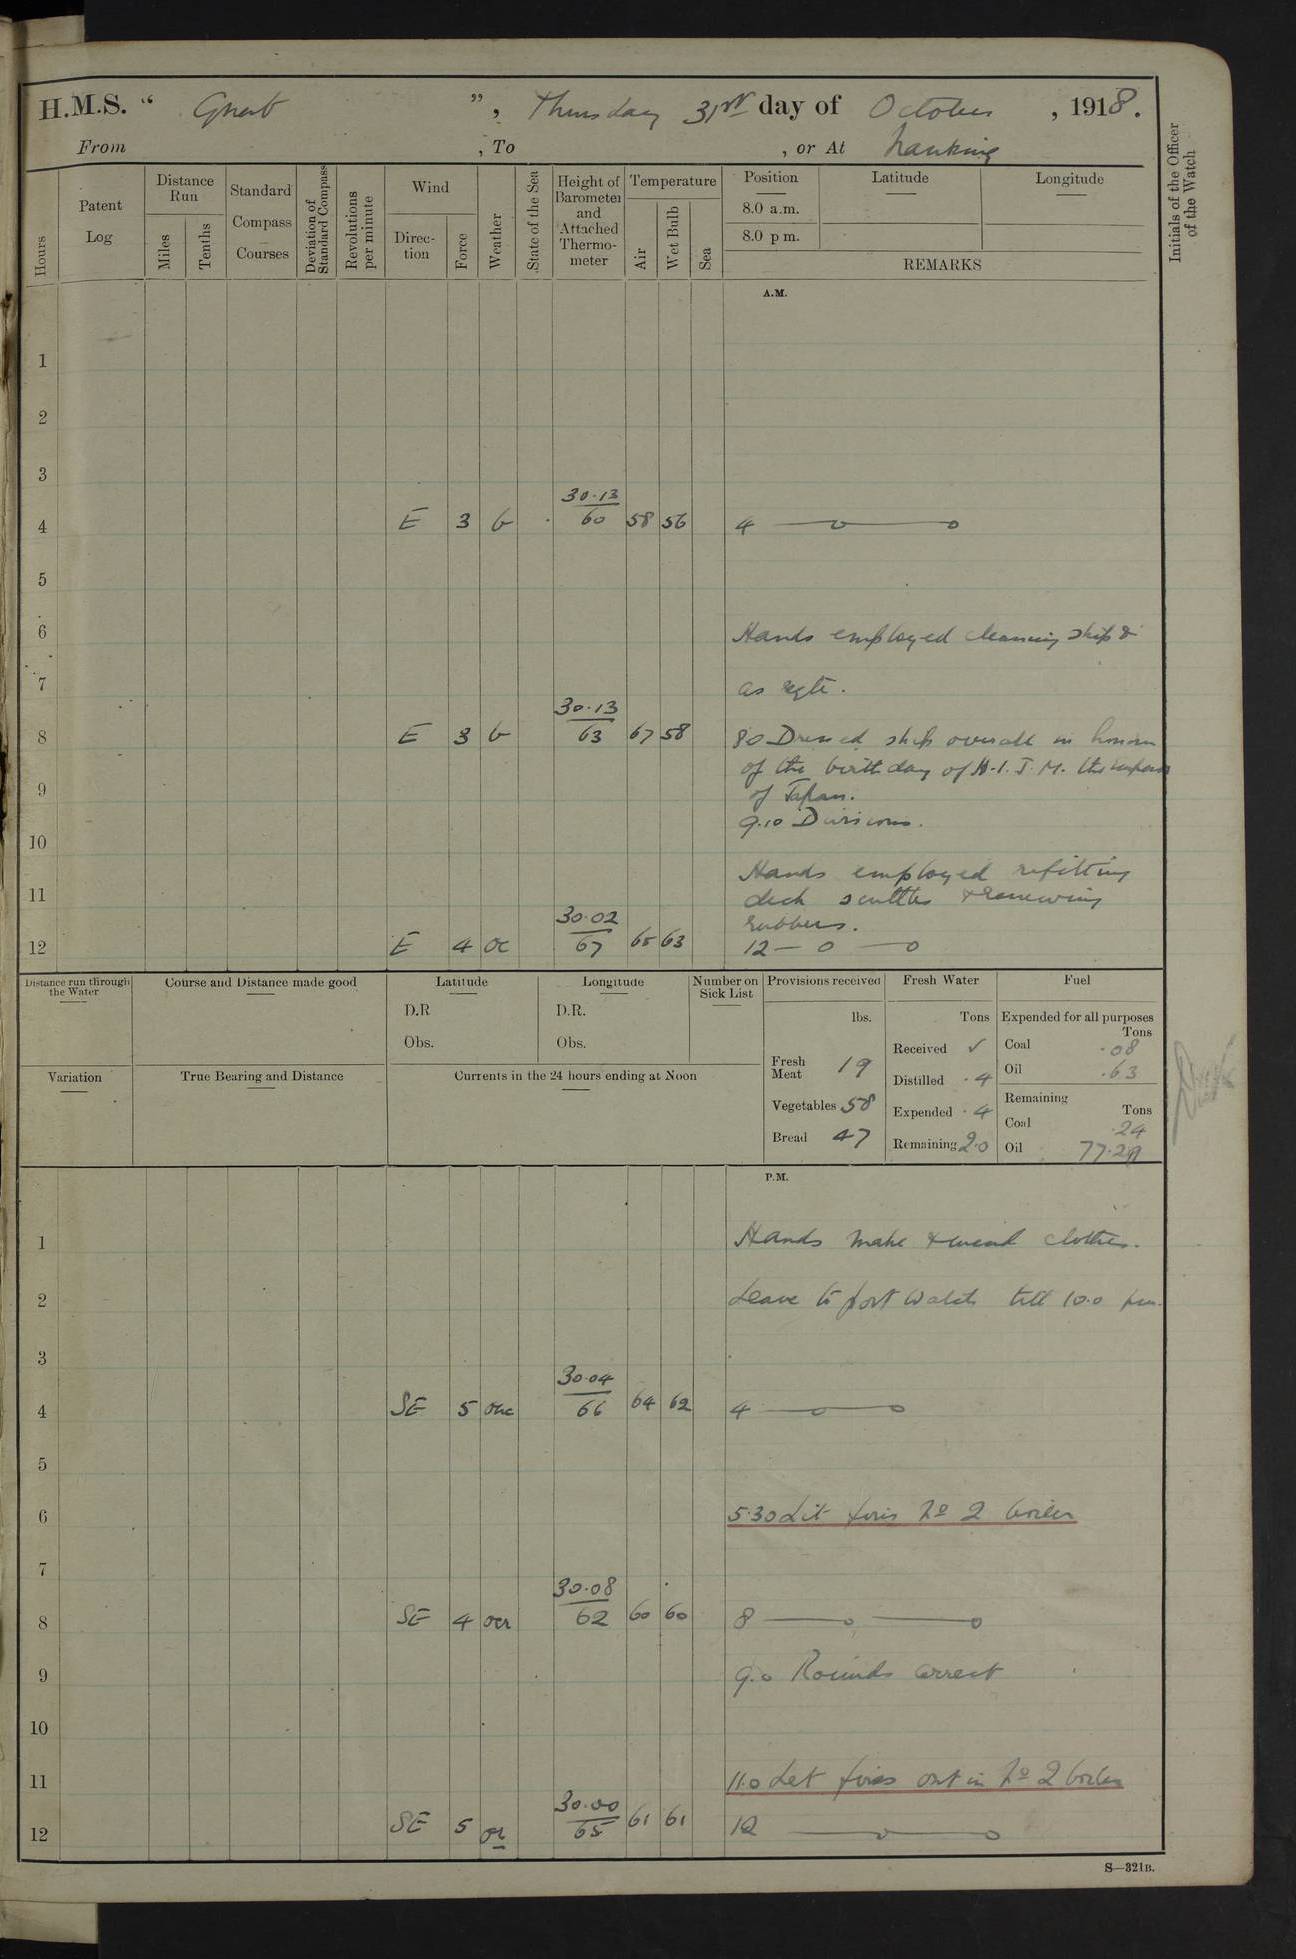 H.M.S. " Gnat ", Thursday 31st day of October, 1918.
From , To , or At Nanking
Hours
Patent Log
Distance Run
Miles
Tenths
Standard Compass Courses
Deviation of Standard Compass
Revolutions per minute
Wind
Direction
Force
Weather
State of the Sea
Height of Barometer and Attached Thermometer
Temperature
Air
Wet Bulb
Sea
Position
8.0 a.m.
8.0 p m.
Latitude
Longitude
REMARKS
Initials of the Officer of the Watch
A.M.
1
2
3
4 E 3 b 30.13 60 58 56 4
5
6 Hands employed cleaning ship &
7 as reqte.
8 E 3 b 30.13 63 67 58 8.0 Dressed ship overall in honour
of the birthday of H.I.J.M. the Emperor
9 of Japan.
9.10 Divisions.
10
Hands employed refitting
11 deck scuttles & renewing
rubbers.
12 E 4 oc 30.02 67 65 63 12
Distance run through the Water
Course and Distance made good
Latitude
D.R
Obs.
Longitude
D.R.
Obs.
Number on Sick List
Provisions received
lbs.
Fresh Meat 19
Vegetables 58
Bread 47
Fresh Water
Tons
Received ✓
Distilled .4
Expended .4
Remaining 2.0
Fuel
Expended for all purposes
Tons
Coal .08
Oil .63
Remaining
Tons
Coal .24
Oil 77.29
Variation
True Bearing and Distance
Currents in the 24 hours ending at Noon
P.M.
1 Hands make & mend clothes.
2 Leave to port watch till 10.0 pm.
3
4 SE 5 30.04 66 64 62 4
5
6 5.30 Lit fires No 2 boiler
7
8 SE 4 ocr 30.08 62 60 60 8
9 9.0 Rounds correct
10
11 11.0 Let fires out in No 2 boiler
12 SE 5 or 30.00 65 61 61 12
S—321B.